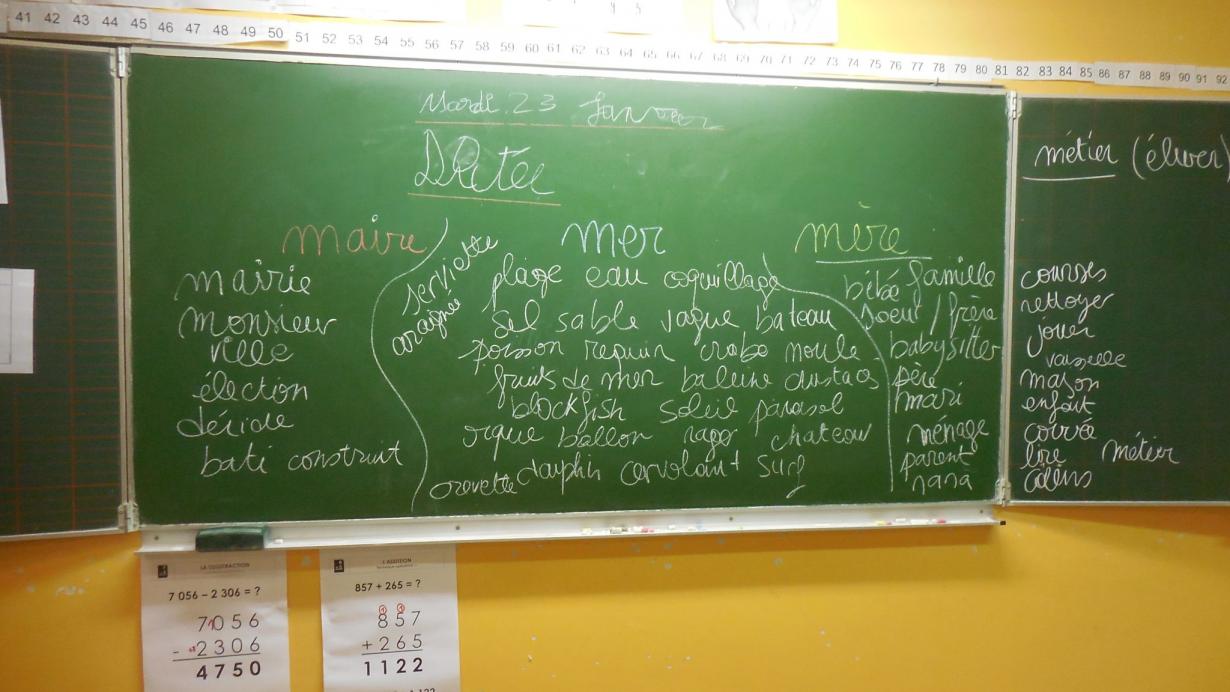 41 42 43 44 45 46 47 48 49 50 51 52 53 54 55 56 57 58 59 60 61 62 63 64 65 66 67 68 69 70 71 72 73 74 75 76 77 78 79 80 81 82 83 84 85 86 87 88 89 90 91 92
Mardi 23 Janvier
maire
mairie
monsieur
ville
élection
décide
bati construit
mer
serviette
araignée
plage eau coquillage
sel sable vague bateau
poisson requin crabe moule
fruits de mer baleine
blockfish soleil parasol
orque ballon nager chateau
crevette dauphin cervolant surf
mère
bébé famille
soeur / frère
babysitter
père
mari
ménage
parent
nana
métier (élever)
courses
nettoyer
jouer
vaisselle
maison
enfant
corvée
lire métier
câlins
LA SOUSTRACTION
7 056 – 2 306 = ?
7056
- 2306
4750
L'ADDITION
857 + 265 = ?
857
+ 265
1122